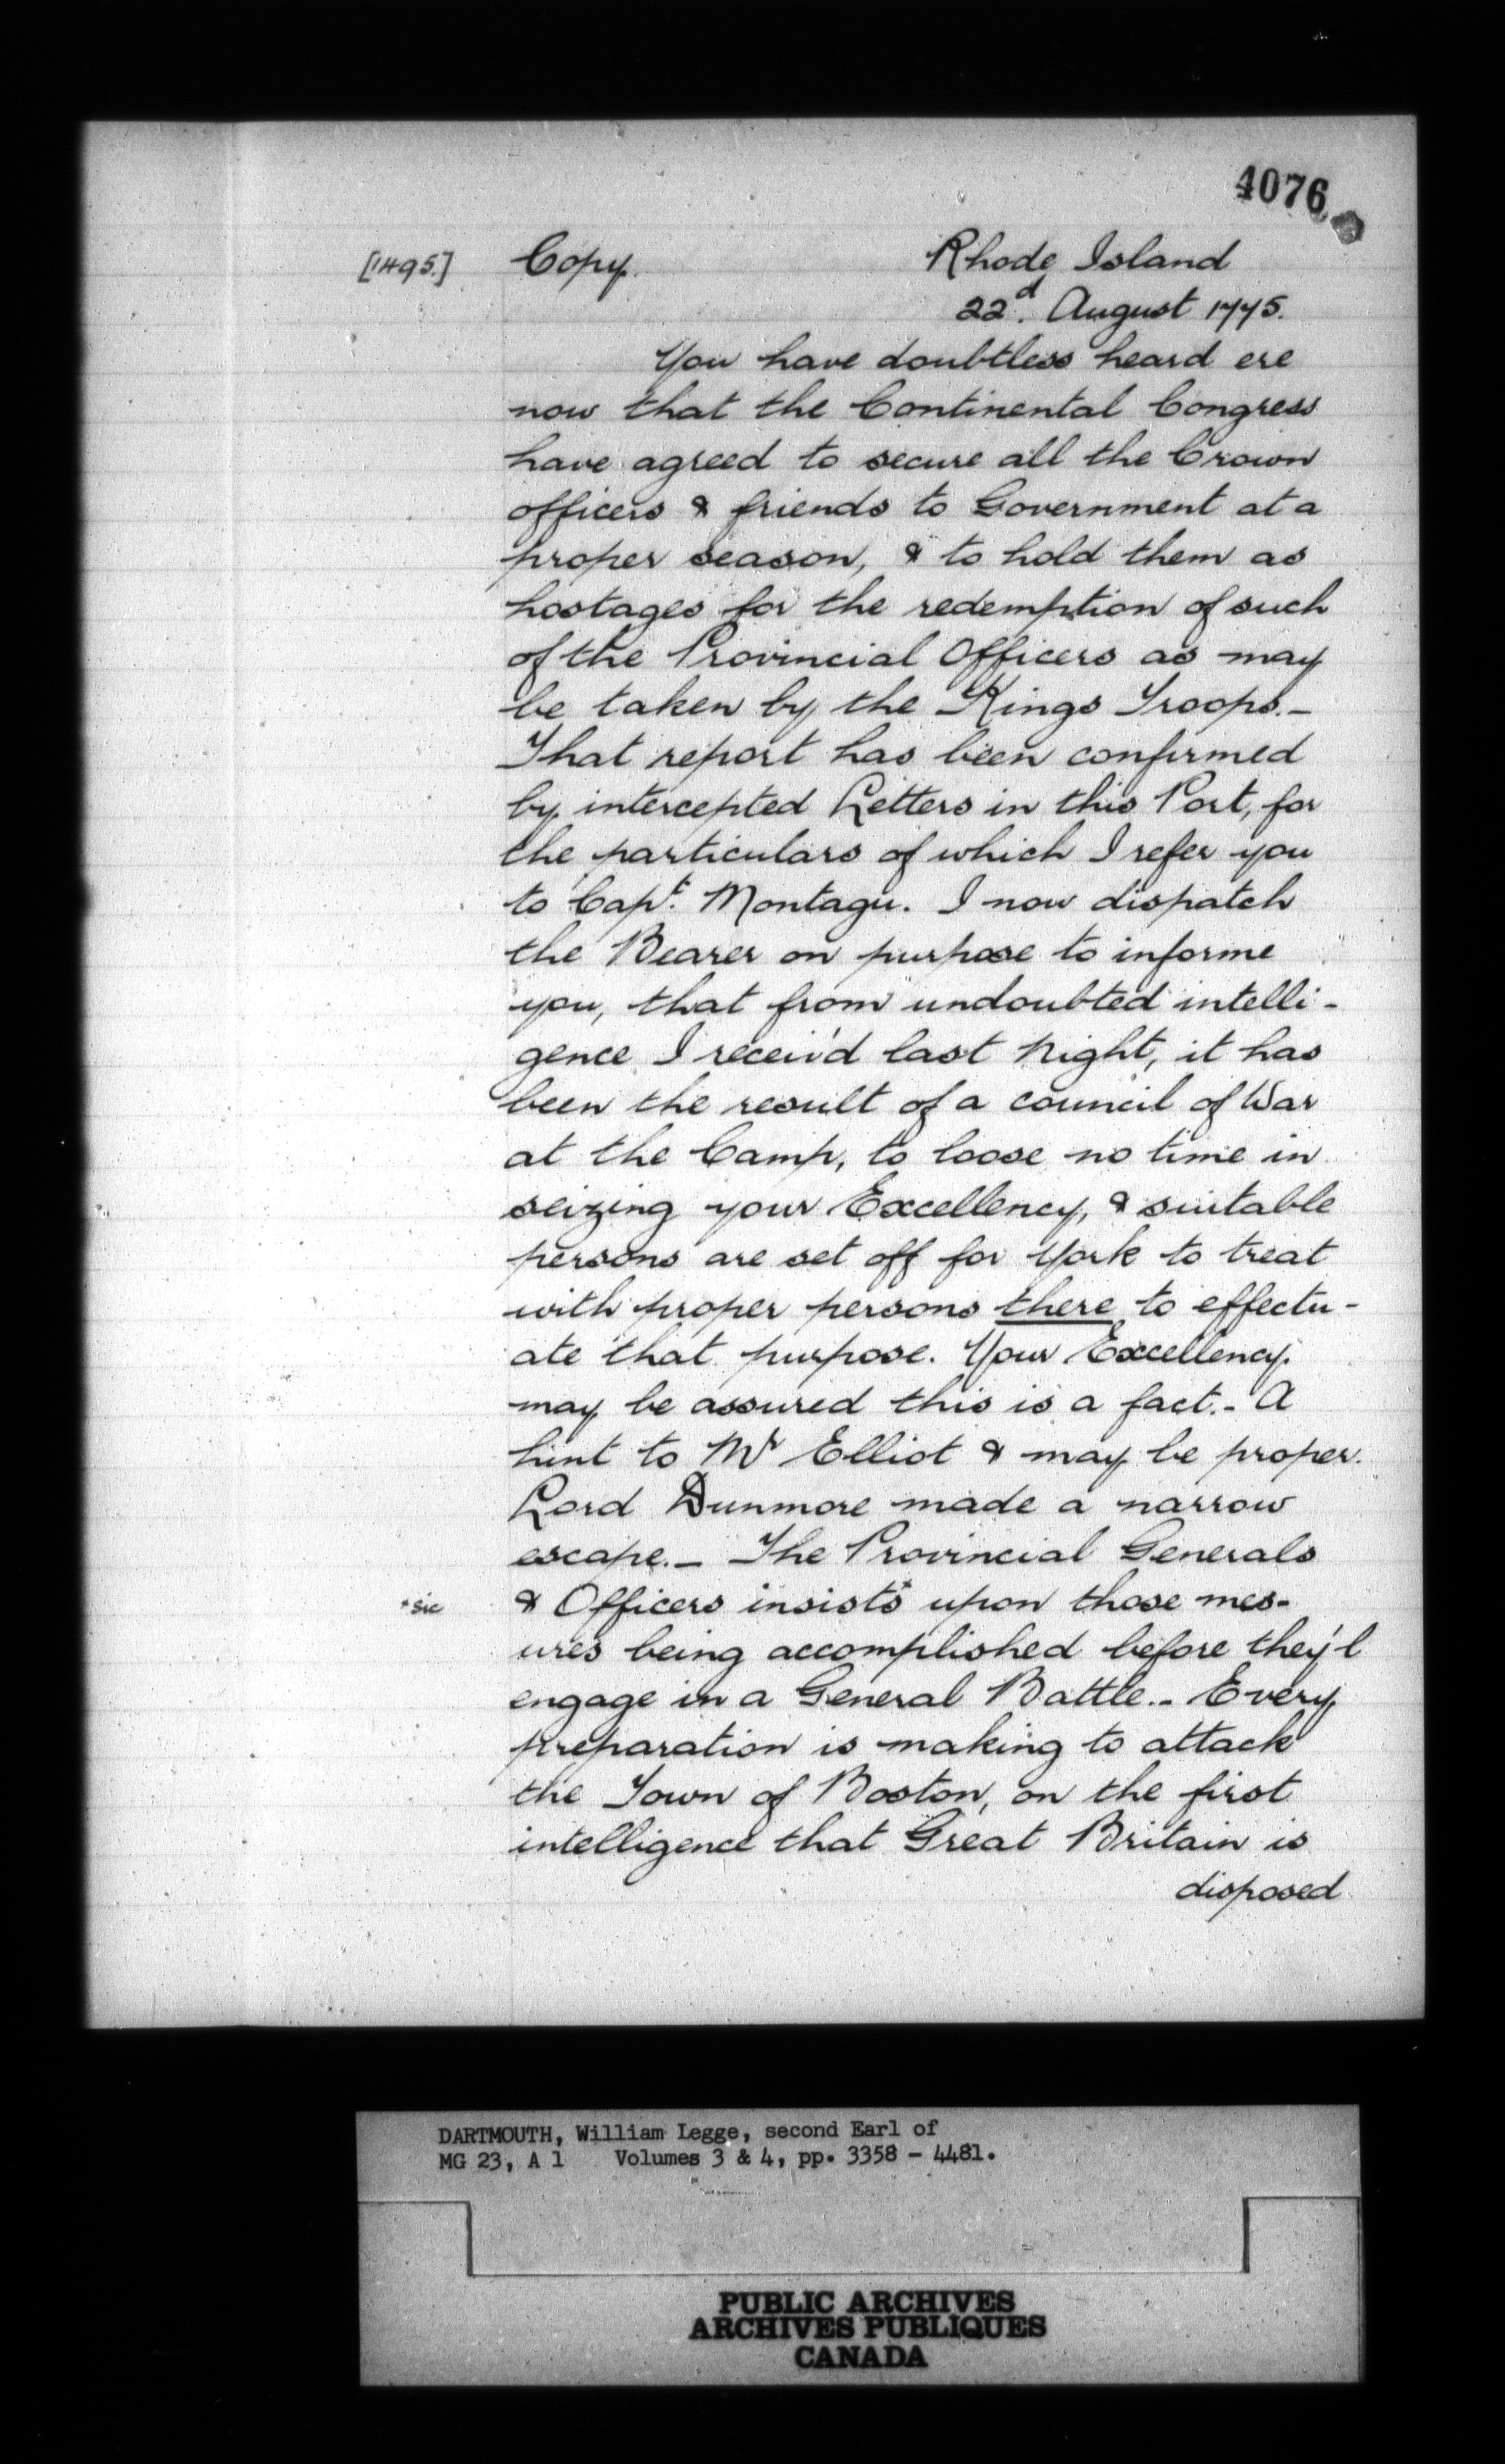 4076
[1495.] Copy. Rhode Island
22d. August 1775.
You have doubtless heard ere
now that the Continental Congress
have agreed to secure all the Crown
officers & friends to Government at a
proper season, & to hold them as
hostages for the redemption of such
of the Provincial Officers as may
be taken by the Kings Troops.—
That report has been confirmed
by intercepted Letters in this Port, for
the particulars of which I refer you
to Capt. Montagu. I now dispatch
the Bearer on purpose to informe
you, that from undoubted intelli-
gence I receiv'd last Night, it has
been the result of a council of War
at the Camp, to loose no time in
seizing your Excellency, & suitable
persons are set off for York to treat
with proper persons there to effectu-
ate that purpose. Your Excellency
may be assured this is a fact.- A
hint to Mr Elliot & may be proper.
Lord Dunmore made a narrow
escape.— The Provincial Generals
+sic & Officers insists+ upon those mes-
ures being accomplished before they'l
engage in a General Battle.- Every
preparation is making to attack
the Town of Boston, on the first
intelligence that Great Britain is
disposed
DARTMOUTH, William Legge, second Earl of
MG 23, A 1 Volumes 3 & 4, pp. 3358 - 4481.
PUBLIC ARCHIVES
ARCHIVES PUBLIQUES
CANADA